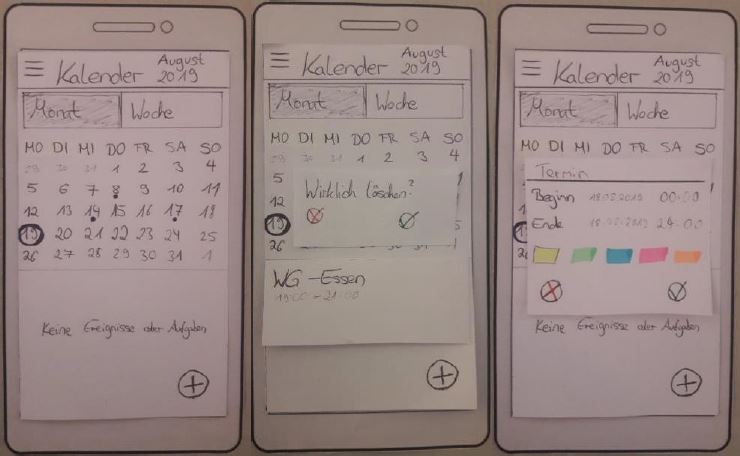 Kalender August 2019
Monat Woche
MO DI MI DO FR SA SO
29 30 31 1 2 3 4
5 6 7 8 9 10 11
12 13 14 15 16 17 18
19 20 21 22 23 24 25
26 27 28 29 30 31 1
Keine Ereignisse oder Aufgaben
Kalender August 2019
Monat Woche
MO DI MI DO FR SA SO
29 30 31 1 2 3 4
5
12
19
26
Wirklich löschen?
WG-Essen
19:00 - 21:00
Kalender August 2019
Monat Woche
MO DI MI DO FR SA SO
Termin
Beginn 19.08.2019 00:00
Ende 24:00
Keine Ereignisse oder Aufgaben